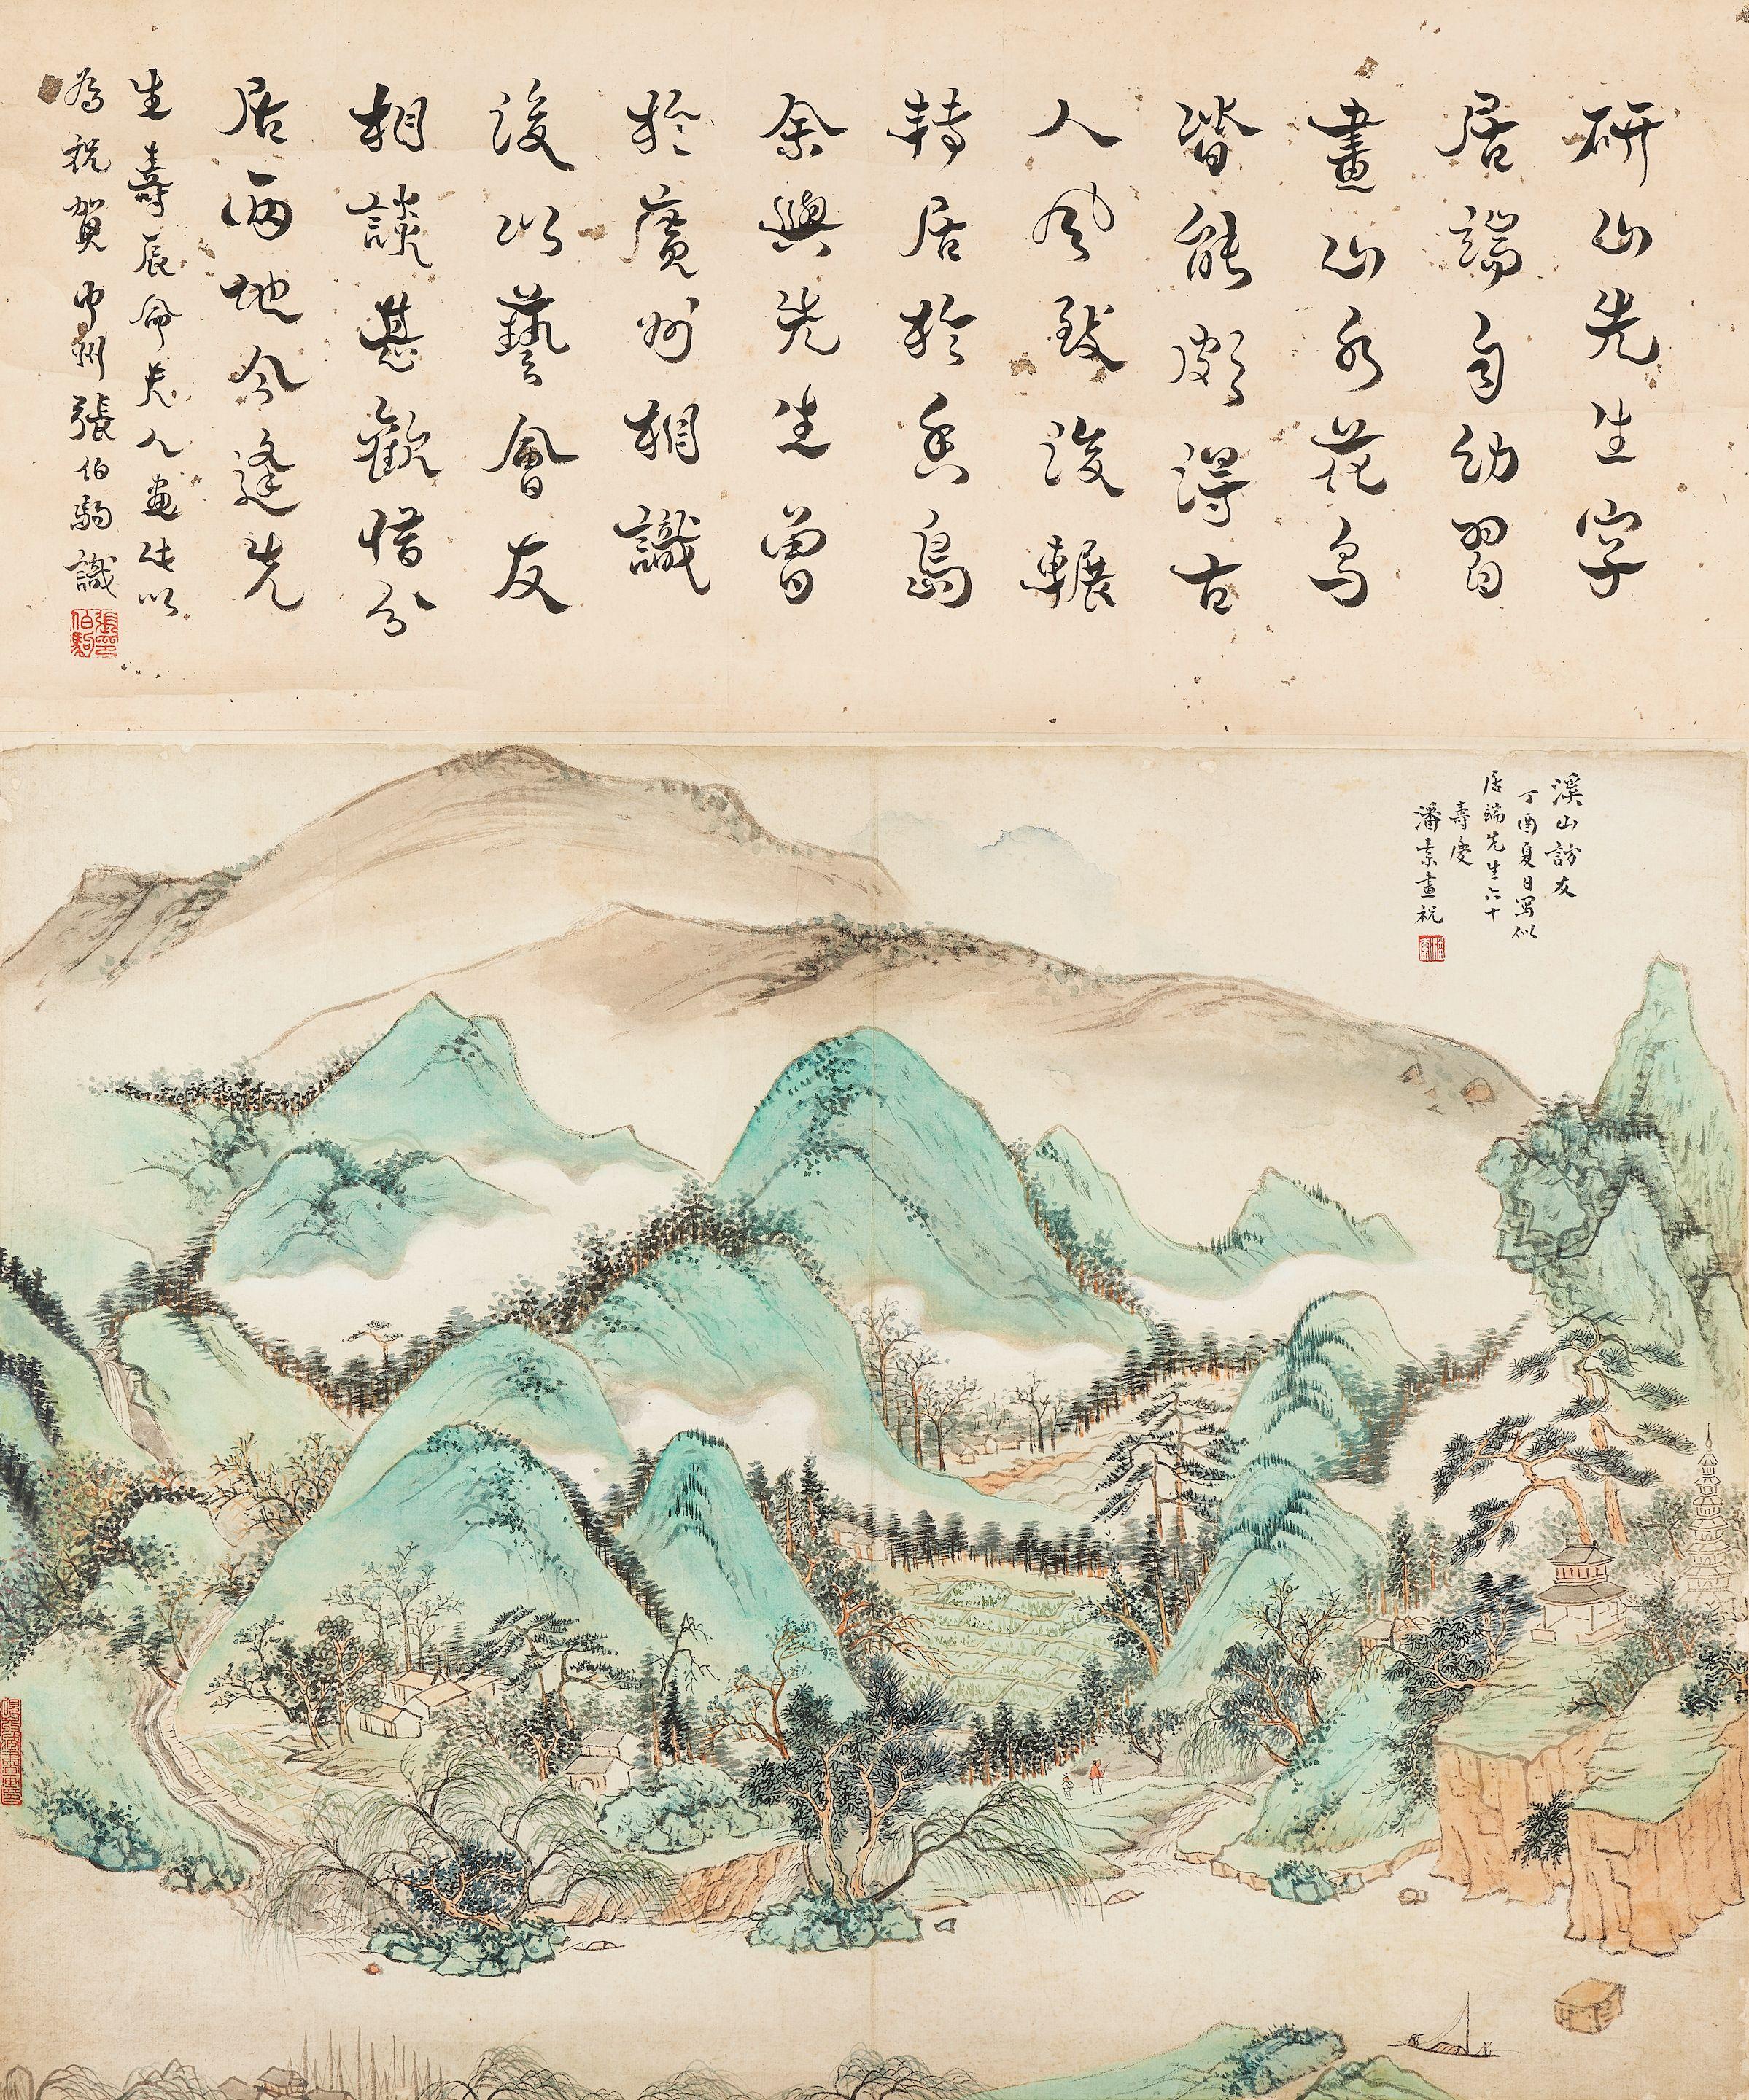 研山先生字
居端自幼習
畫山水花鳥
皆能頗得古
人風致後輾
轉居於香島
余與先生曾
於廣州相識
後以藝會友
相談甚歡惜分
居兩地今逢先
生壽辰命夫人畫此以
為祝賀中州張伯駒識
張伯駒印
溪山訪友
丁酉夏日寫似
居端先生六十
壽慶
潘素畫祝
潘素